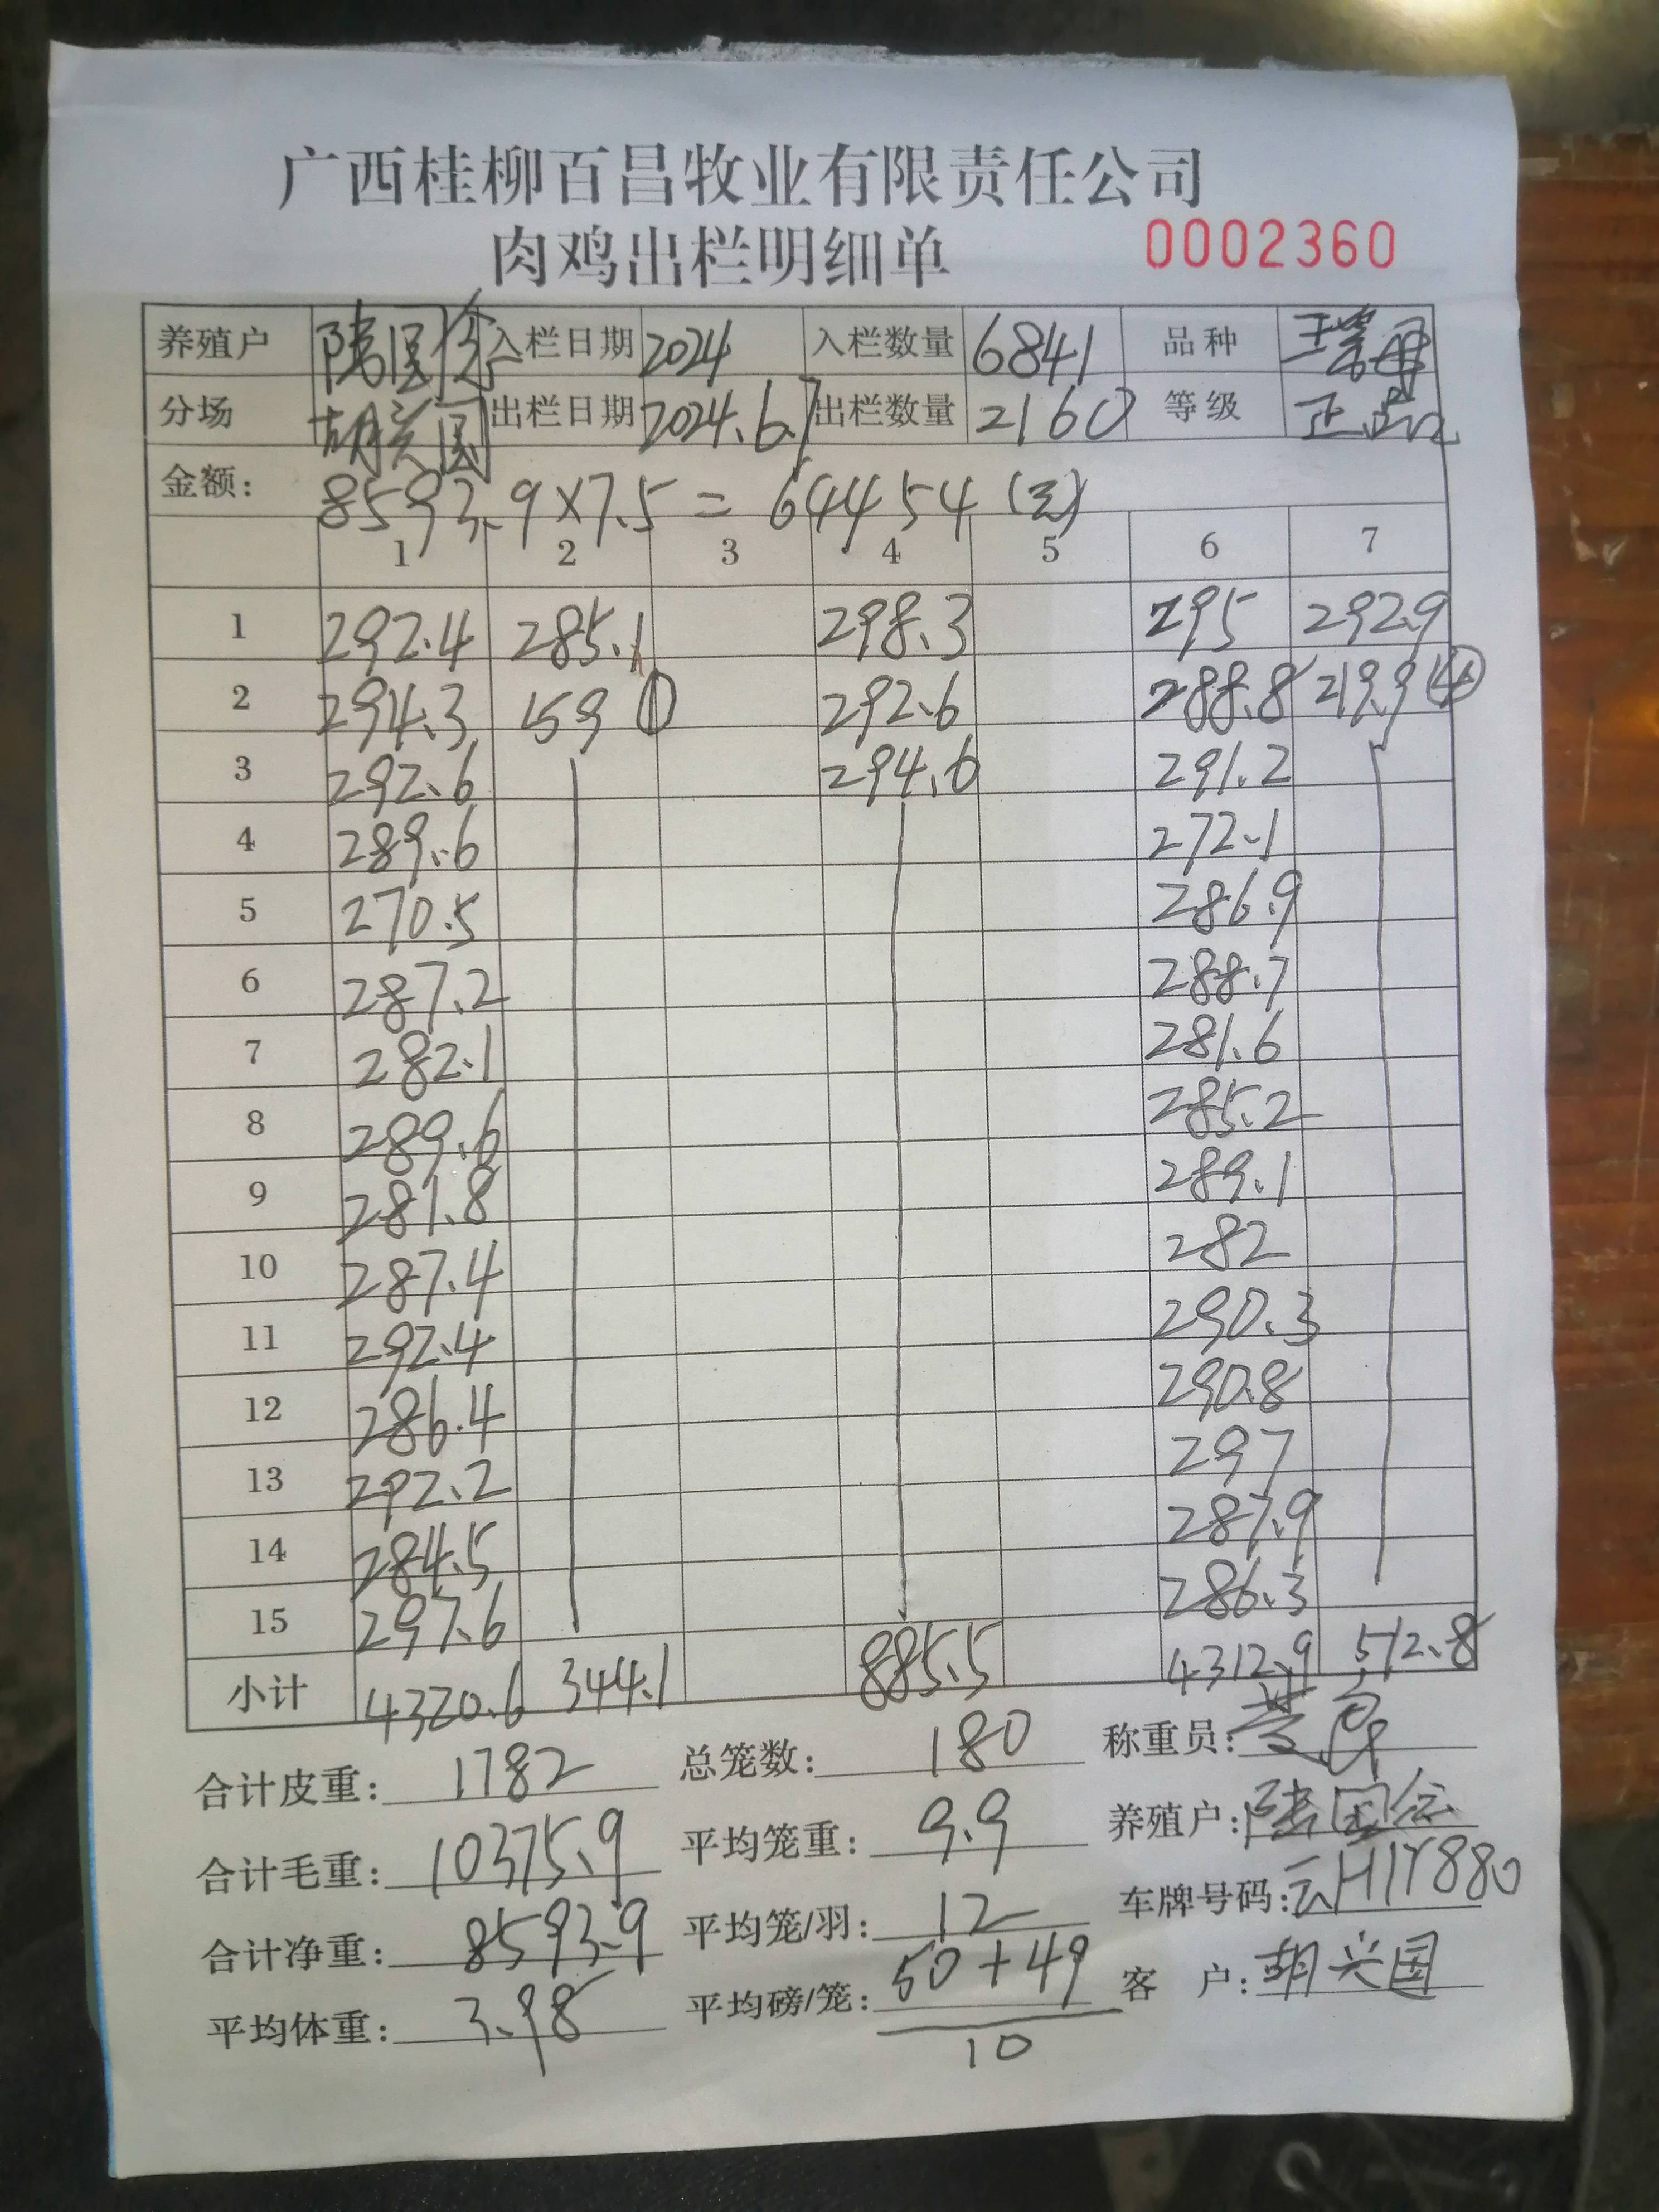 广西桂柳百昌牧业有限责任公司
肉鸡出栏明细单 0002360
养殖户 陆国 入栏日期 2024 入栏数量 6841 品种
分场 胡兴国 出栏日期 2024.6.7 出栏数量 2160 等级 正品
金额: 8593.9×7.5=64454(元)
1 2 3 4 5 6 7
1 292.4 285.1 298.3 295 292.9
2 294.3 59 ① 292.6 288.8 219.9 ④
3 292.6 294.6 291.2
4 289.6 272.1
5 270.5 286.9
6 287.2 288.7
7 282.1 281.6
8 289.6 285.2
9 281.8 289.1
10 287.4 282
11 292.4 290.3
12 286.4 290.8
13 292.2 297
14 284.5 287.9
15 297.6 286.3
小计 4320.6 344.1 885.5 4312.9 512.8
合计皮重: 1782 总笼数: 180 称重员:
合计毛重: 10375.9 平均笼重: 9.9 养殖户: 陆国
合计净重: 8593.9 平均笼/羽: 12 车牌号码: 云H1Y880
平均体重: 3.98 平均磅/笼: 50+49 客 户: 胡兴国
10